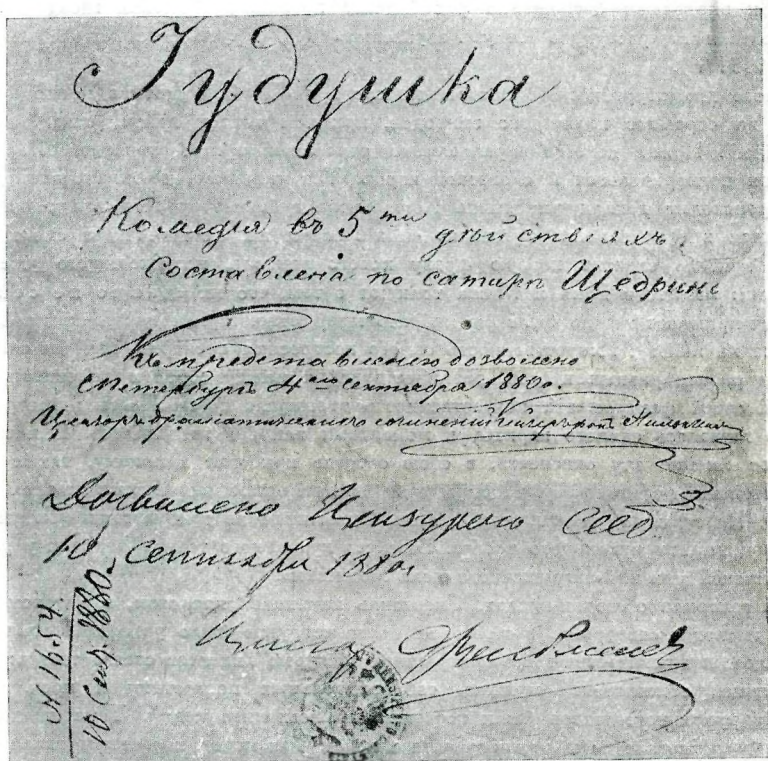 Іудушка
Комедія въ 5ти дѣйствіяхъ.
Составлена по сатирѣ Щедрина
Къ представленію дозволено
СПетербургъ 4го сентября 1880 г.
Цензоръ драматическихъ сочиненій
Дозволено Цензурою
10 Сентября 1880 г
Цензоръ
N 1654.
10 Сент. 1880